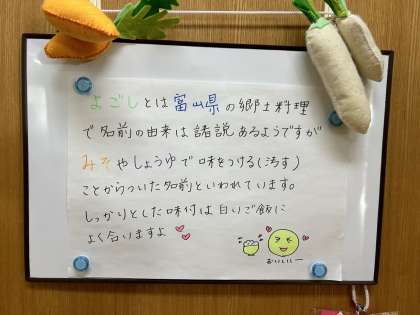 よごしとは富山県の郷土料理
で名前の由来は諸説あるようですが
みそやしょうゆで味をつける(汚す)
ことからついた名前といわれています。
しっかりとした味付は白いご飯に
よく合いますよ
おいしいー